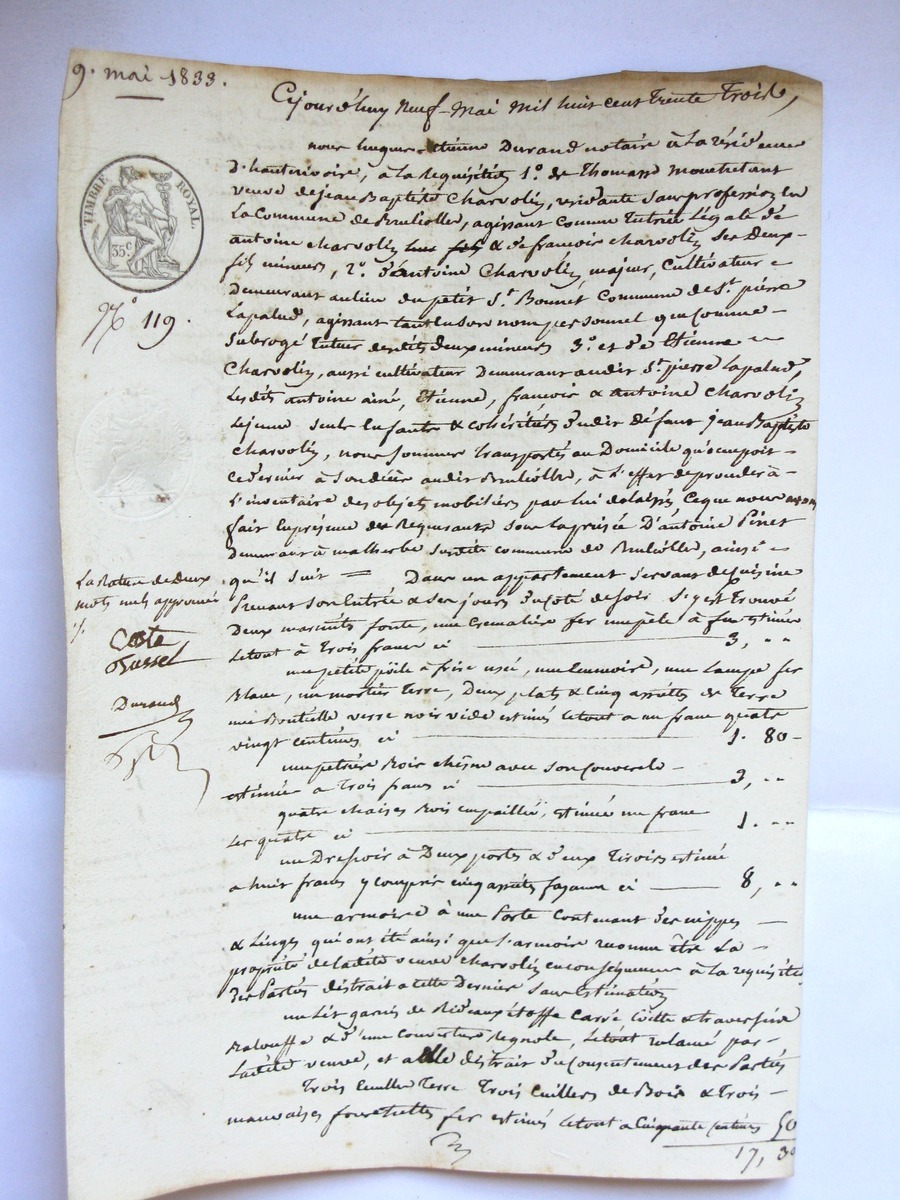 9. mai 1833.
Cejourd'huy neuf Mai mil huit cent trente trois,
nous hugues etienne Durand notaire à La résidence
D'hauterivoire, à La Requisition 1º. de Thomasse
veuve de jean Baptiste Charvolin, residante sans profession en
La Commune de Brulliolles, agissant comme tutrice Légale de
antoine charvolin & de francois charvolin ses Deux
fils mineurs, 2º. d'Antoine Charvolin, majeur, Cultivateur
Demeurant au lieu du petit St. Bonnet Commune de St. pierre
Lapalud, agissant tant en son nom personnel que comme
Subrogé tuteur desdits deux mineurs 3º. et de Etienne
Charvolin, aussi cultivateur Demeurant audit St. pierre Lapalud,
Lesdits antoine ainé, Etienne, francois & antoine Charvolin
Lejeune seuls Enfants & cohéritiers dudit défunt jean Baptiste
Charvolin, nous sommes transportés au Domicile qu'occupoit
ce dernier à Son décès audit Brulliolles, à L'effet de proceder à
L'inventaire des objets mobiliers par lui delaissés Ce que nous avons
fait En présence des Requérants sous La prisée D'antoine Pinet
Demeurant à malherbe susdite commune de Brulliolles, ainsi
qu'il suit = Dans un appartement servant de cuisine
Prenant son Entrée & ses jours du coté de soir s'y est trouvé
Deux marmites fonte, une cremalière fer une pèle à feu estimé
Letout à Trois francs ci 3, "
une petite poële à frire usée, une une Lampe fer
Blanc, un mortier terre, Deux plats & cinq assiettes de terre
une Bouteille verre noir vide estimés Letout a un franc quatre
vingt centimes ci 1. 80
une petrière Bois chêne avec son Couvercle
estimée a Trois francs ci 3, "
quatre chaises Bois empaillées, estimées un franc
Les quatre ci 1. "
un Dressoir à Deux portes & deux Tiroirs estimé
a huit francs y compris cinq assiettes fayance ci 8, "
une armoire à une Porte contenant des nippes
& Linges qui ont été ainsi que L'armoire reconnu être La
propriété de ladite veuve Charvolin en conséquence à La requisition
des Parties distrait a cette Dernière sans estimation
un Lit garni de Rideaux étoffe carré & traversin
Balouffe & d'une couverture, Letout reclamé par
Ladite veuve, et a Elle distrait du Consentement des Parties
Trois terre Trois Cuillers de Bois & trois
mauvaises fourchettes fer estimés Letout a Cinquante centimes 50
17, 30
TIMBRE ROYAL.
35c.
Nº 119.
La Rature de Deux
mots nuls approuvée
Coste
Bussel
Durand